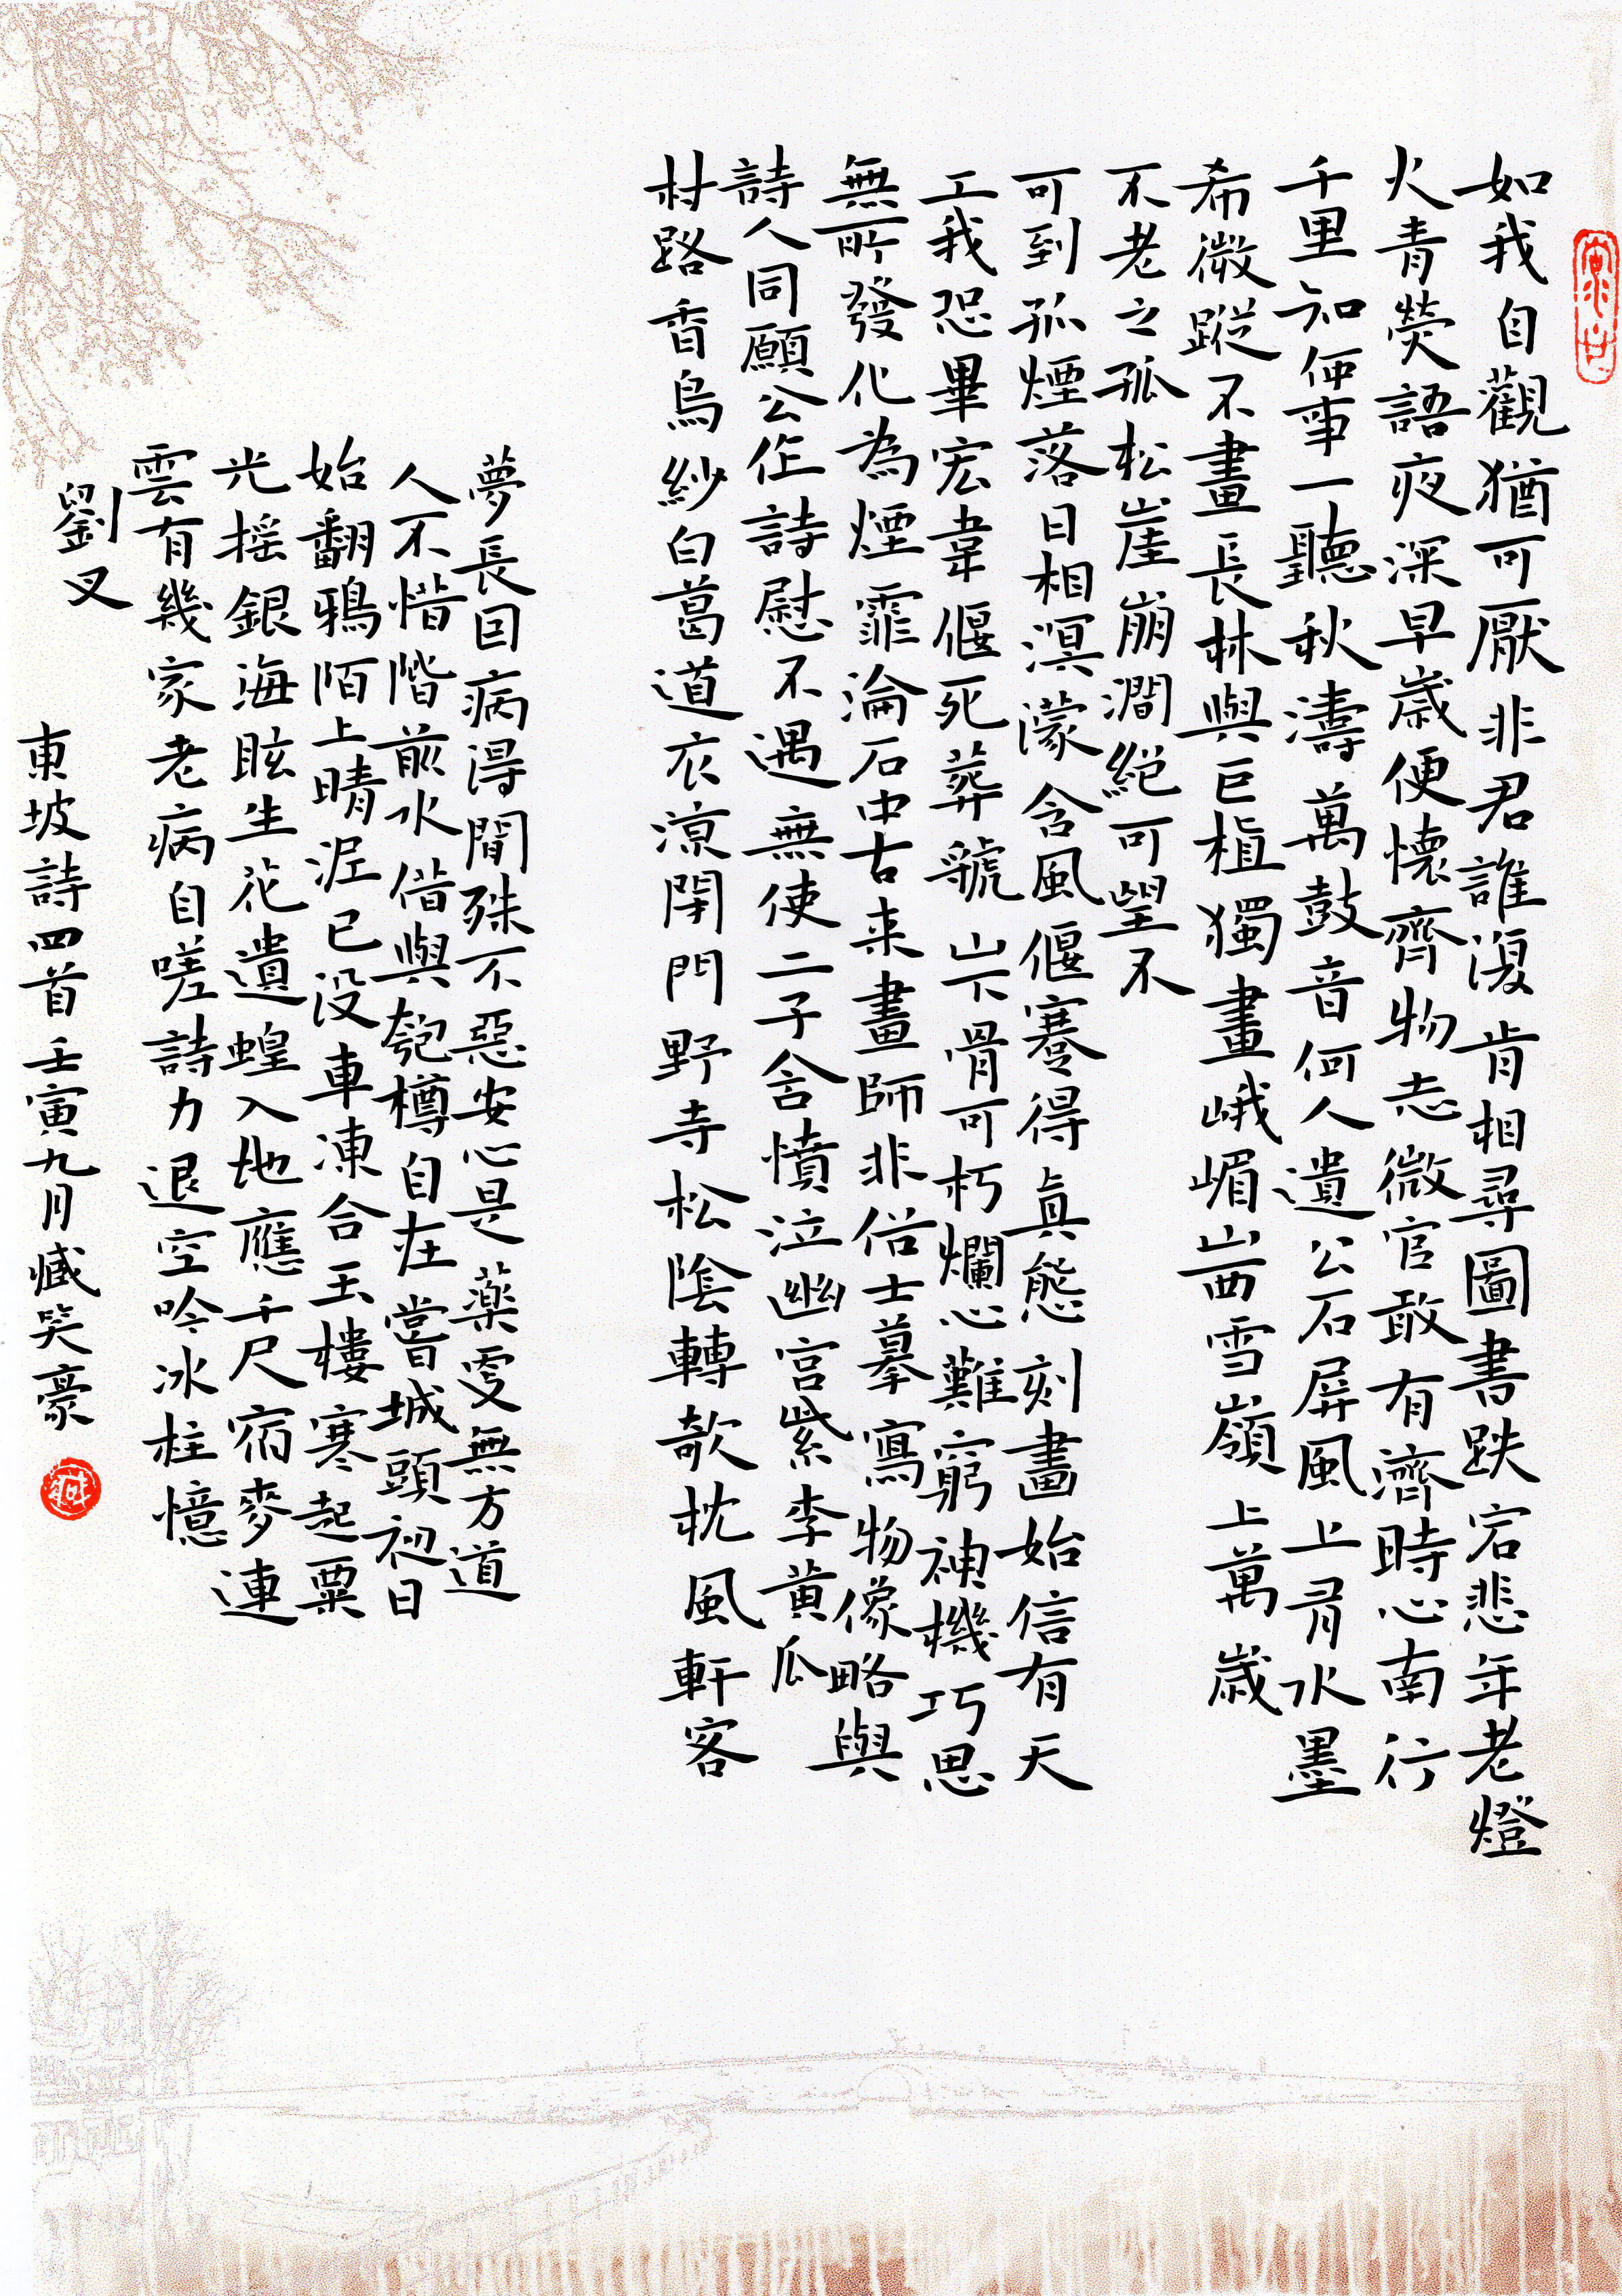 如我自觀猶可厭非君誰復肯相尋圖書跌宕悲年老燈
火青熒語夜深早歲便懷齊物志微官敢有濟時心南行
千里知何事一聽秋濤萬鼓音何人遺公石屏風上有水墨
希微蹤不畫長林與巨植獨畫峨嵋山西雪嶺上萬歲
不老之孤松崖崩澗絕可望不
可到孤煙落日相溟濛含風偃蹇得真態刻畫始信有天
工我恐畢宏韋偃死葬虢山下骨可朽爛心難窮神機巧思
無所發化為煙霏淪石中古来畫師非俗士摹寫物像略與
詩人同願公作詩慰不遇無使二子含憤泣幽宮紫李黃瓜
村路香烏紗白葛道衣涼閉門野寺松陰轉欹枕風軒客
夢長因病得閒殊不惡安心是藥更無方道
人不惜階前水借與匏樽自在嘗城頭初日
始翻鴉陌上晴泥已沒車凍合玉樓寒起粟
光搖銀海眩生花遺蝗入地應千尺宿麥連
雲有幾家老病自嗟詩力退空吟冰柱憶
劉叉
東坡詩四首壬寅九月臧笑豪